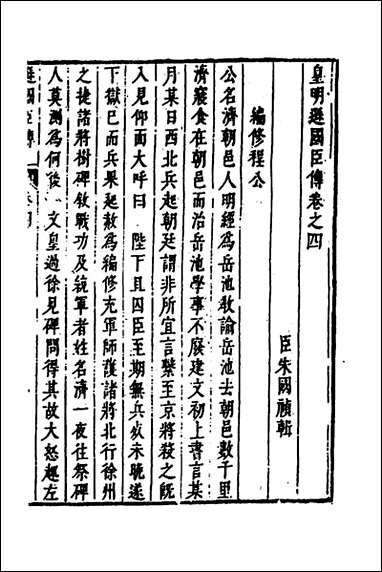 皇明遜國臣傳卷之四
臣朱國禎輯
編修程公
公名濟朝邑人明經爲岳池敎諭岳池去朝邑數千里
濟寢食在朝邑而治岳池學事不廢建文初上書言某
月某日西北兵起朝廷謂非所宜言檠至京將殺之旣
入見仰面大呼曰 陛下且囚臣至期無兵殺未晚遂
下獄已而兵果起赦爲編修充軍師護諸將北行徐州
之捷諸將樹碑敘戰功及統軍者姓名濟一夜往祭碑
人莫測爲何後 文皇過徐見碑問得其故大怒趣左
遜國臣傳